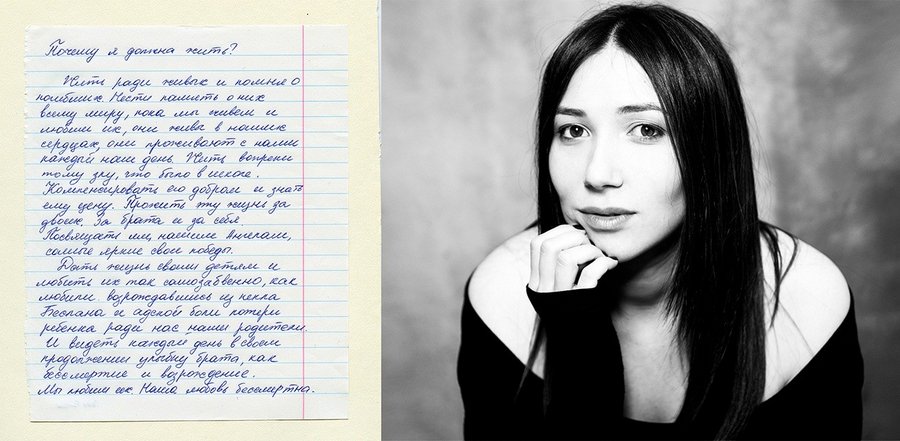 Почему я должна жить?
Жить ради живых и помня о
погибших. Нести память о них
всему миру, пока мы живем и
любим их, они живы в наших
сердцах, они проживают с нами
каждый наш день. Жить вопреки
тому злу, что было в школе.
Компенсировать его добром и знать
ему цену. Прожить эту жизнь за
двоих. За брата и за себя.
Посвящать им, нашим Ангелам,
самые яркие свои победы.
Дать жизнь своим детям и
любить их так самозабвенно, как
любили возродившись из пепла
Беслана и адской боли потери
ребенка ради нас наши родители.
И видеть каждый день в своем
продолжении улыбку брата, как
бессмертие и возрождение.
Мы любим их. Наша любовь бессмертна.